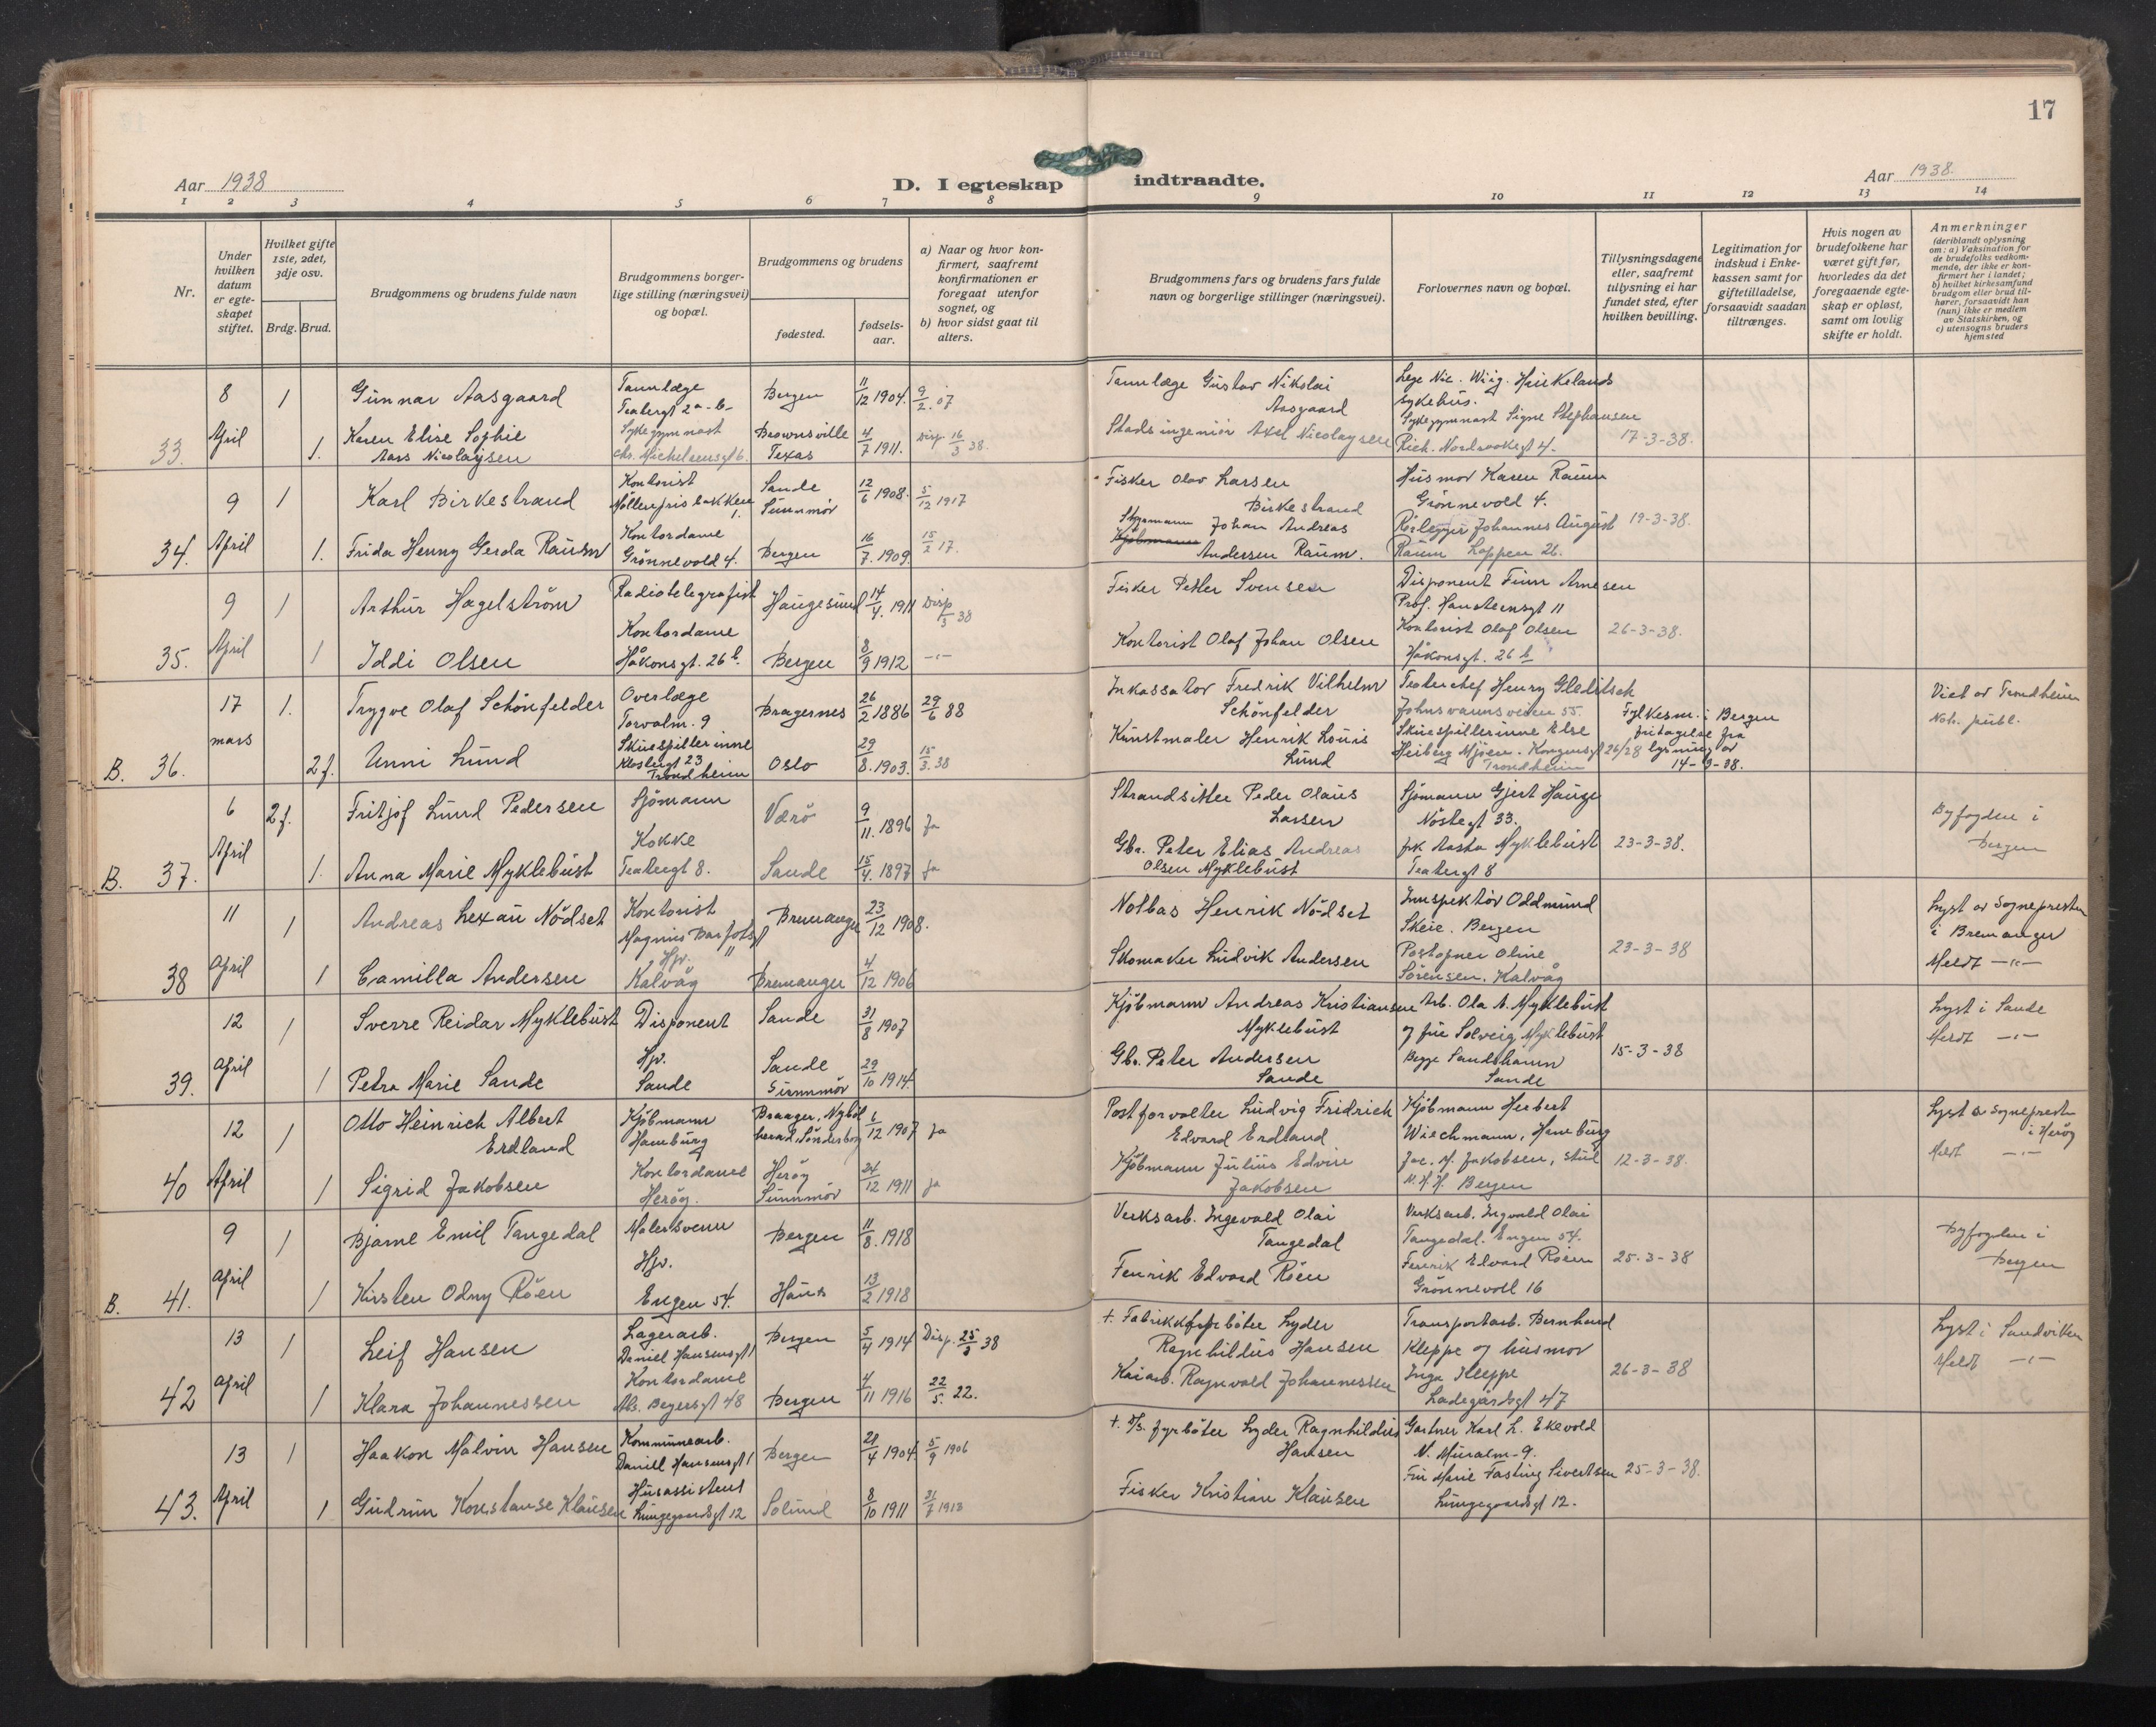 17
Aar 1938
D. I egteskap indtraadte.
Aar 1938.
1 2 3 4 5 6 7 8 9 10 11 12 13 14
Nr.
Under hvilken datum er egteskapet stiftet.
Hvilket gifte 1ste, 2det, 3dje osv.
Brdg. Brud.
Brudgommens og brudens fulde navn
Brudgommens borgerlige stilling (næringsvei) og bopæl.
Brudgommens og brudens
fødested.
fødselsaar.
a) Naar og hvor konfirmert, saafremt konfirmationen er foregaat utenfor sognet, og
b) hvor sidst gaat til alters.
Brudgommens fars og brudens fars fulde navn og borgerlige stillinger (næringsvei).
Forlovernes navn og bopæl.
Tillysningsdagene eller, saafremt tillysning ei har fundet sted, efter hvilken bevilling.
Legitimation for indskud i Enkekassen samt for giftetilladelse, forsaavidt saadan tiltrænges.
Hvis nogen av brudefolkene har været gift før, hvorledes da det foregaaende egteskap er opløst, samt om lovlig skifte er holdt.
Anmerkninger
(deriblandt oplysning om: a) Vaksination for de brudefolks vedkommende, der ikke er konfirmert her i landet;
b) hvilket kirkesamfund brudgom eller brud tilhører, forsaavidt han (hun) ikke er medlem av Statskirken, og
c) utensogns bruders hjemsted
8 1 Gunnar Aasgaard Tannlæge Teatergt 2a-b- Bergen 11/12 1904. 9/2. 07 Tannlæge Gustav Nikolai Aasgaard Lege Nic. Wiig. Haukelands sykehus.
33. April 1. Karen Elise Sophie Aars Nicolaysen Sykegymnast Chr. Michelsensgt 6. Brownsville Texas 4/7 1911. Disp 16/3 38. Stadsingeniör Axel Nicolaysen Sykegymnast Signe Stephansen Rich. Nordraaksgt 4. 17-3-38.
9 1 Karl Birkestrand Kontorist Möllerpris bakken 1. Sande Sunnmör 12/6 1908. 5/12 1917 Fisker Olav Larsen Birkestrand Husmor Karen Raum Grönnevold 4.
34. April 1. Frida Henny Gerda Raum Kontordame Grönnevold 4. Bergen 16/7. 1909. 15/2 17. Styrmann Johan Andreas Andersen Raum. Rörlegger Johannes August Raum Loppen 26. 19-3-38.
9 1 Arthur Hagelström Radiotelegrafist Haugesund 14/4. 1911 Disp /3 38 Fisker Petter Svensen Disponent Finn Arnesen Prof. Hansteensgt 11
35. April 1 Iddi Olsen Kontordame Håkonsgt. 26 b. Bergen 8/9 1912 -"- Kontorist Olaf Johan Olsen Kontorist Olaf Olsen Håkonsgt. 26 b 26-3-38.
17 1. Trygve Olaf Schönfelder Overlæge Torvalm. 9 Bragernes 26/2 1886 29/6 88 Inkassator Fredrik Vilhelm Schönfelder Teaterchef Henry Gleditsch Johnsvannsveien 55. Fylkesm. i Bergen fritagelse fra lysning av 14-3-38. Viet av Trondheim Not. publ.
B. 36. mars 2 f. Unni Lund Skuespillerinne Klostergt 23 Trondheim Oslo 29/8. 1903. 15/3. 38 Kunstmaler Henrik Louis Lund Skuespillerinne Else Heiberg Mjöen. Kongensgt 26/28 Trondheim
6 2 f. Fritjof Lund Pedersen Sjömann Værö 9/11. 1896 Ja Strandsitter Peder Olaus Larsen Sjömann Gjert Hauge Nöstegt 33. Byfogden i Bergen
B. 37. April 1. Anna Marie Myklebust Kokke Teatergt 8. Sande 15/4. 1897 Ja Gbr. Peter Elias Andreas Olsen Myklebust frk Aasta Myklebust Teatergt 8 23-3-38.
11 1 Andreas Lexau Nödset Kontorist Magnus Barfotsgt 11 Bremanger 23/12 1908. Notbas Henrik Nödset Innspektör Oddmund Skeie. Bergen Lyst av Sognepresten i Bremanger
38 April 1 Camilla Andersen Hjv. Kalvåg Bremanger 4/12 1906 Skomaker Ludvik Andersen Postopner Oline Sörensen. Kalvåg 23-3-38 Meldt -"-
12 1 Sverre Reidar Myklebust Disponent Sande 31/8 1907 Kjöbmann Andreas Kristiansen Myklebust Arb. Ola A. Myklebust og fru Solveig Myklebust Lyst i Sande
39. April 1 Petra Marie Sande Hjv. Sande Sande Sunnmör 29/10 1914 Gbr. Peter Andersen Sande Begge Sandshamn Sande 15-3-38 Meldt -"-
12 1 Otto Heinrich Albert Erdland Kjöbmann Hamburg Braager, Nyböl herad, Sönderborg 6/12 1907 Ja Postforvalter Ludvig Fridrich Edvard Erdland Kjöbmann Herbert Wiechmann, Hamburg Lyst av Sogneprest i Heröy
40 April 1 Sigrid Jakobsen Kontordame Heröy. Heröy Sunnmör 24/12 1911 Ja Kjöbmann Julius Edvin Jakobsen Jac. M. Jakobsen, stud N.H.H. Bergen 12-3-38. Meldt -"-
9 1 Bjarne Emil Tangedal Malersvenn Bergen 11/8. 1918 Verksarb. Ingevald Olai Tangedal Verksarb. Ingvald Olai Tangedal. Engen 54. Byfogden i Bergen
B. 41. April 1 Kirsten Odny Röen Hjv. Engen 54. Haus 13/2 1918 Fenrik Edvard Röen Fenrik Edvard Röen Grönnevoll 16 25-3-38
13 1 Leif Hansen Lagerarb. Daniel Hansensgt 1 Bergen 5/4 1914 Disp. 25/3 38 + Fabrikkfyrböter Lyder Ragnhildus Hansen Transportarb. Bernhard Kleppe og husmor Lyst i Sandviken
42 April 1 Klara Johannessen Kontordame Abs. Beyersgt 48 Bergen 4/11 1916 22/5. 22. Kaiarb. Ragnvald Johannessen Inga Kleppe Ladegårdsgt 47 26-3-38 Meldt -"-
13 1 Haakon Malvin Hansen Kommunearb. Daniel Hansensgt 1 Bergen 21/4 1904. 5/9 1906 + D/S. fyrböter Lyder Ragnhildus Hansen Gartner Karl L. Ekevold N. Muralm-9.
43. April 1 Gudrun Konstanse Klausen Husassistent Lungegaardsgt 12 Solund 8/10 1911 31/7 1913 Fisker Kristian Klausen Fru Marie Fasting Sivertsen Lungegaardsgt 12. 25-3-38.